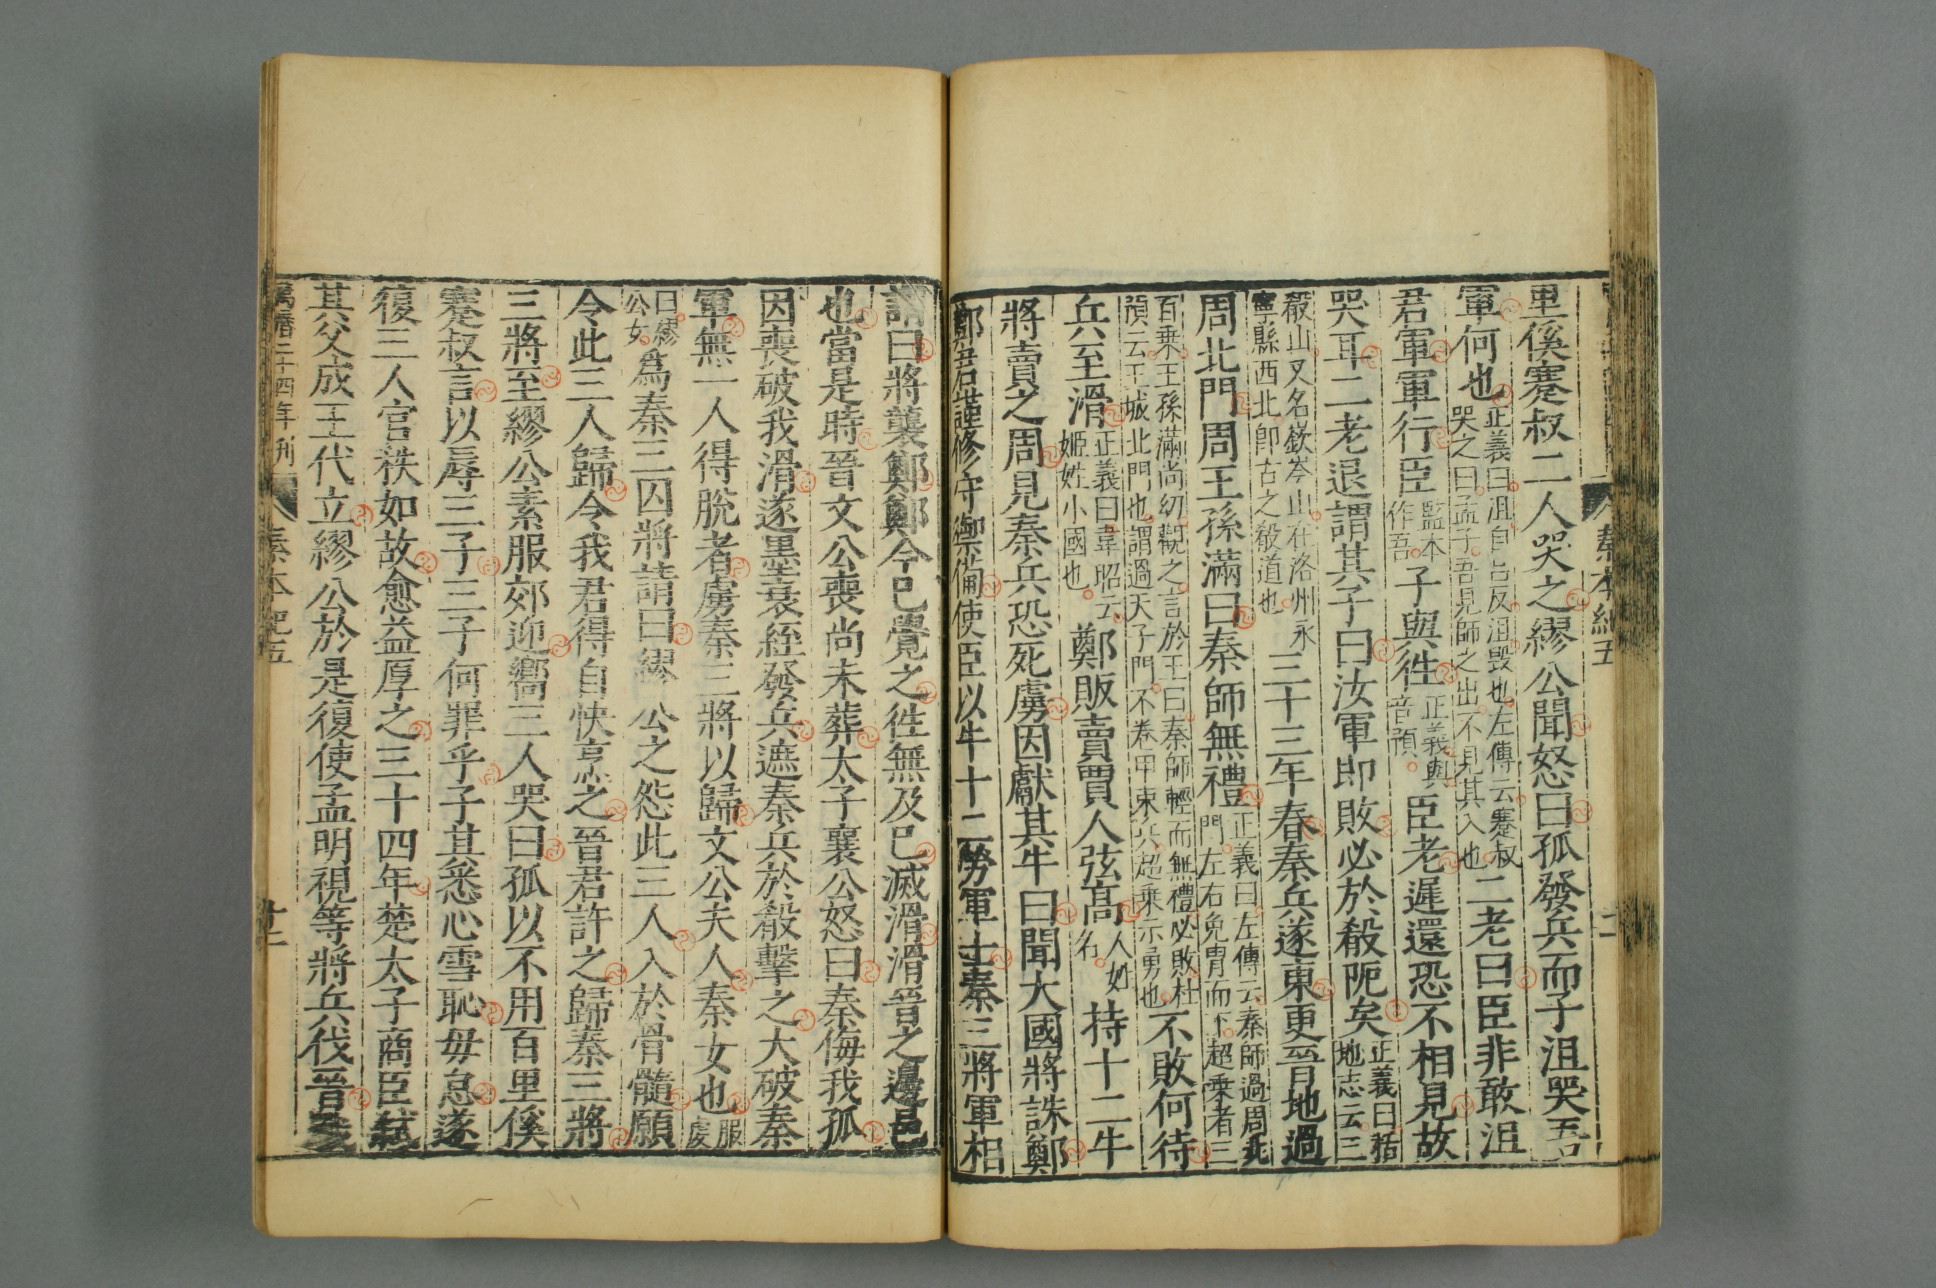 秦本紀五
里傒蹇叔二人哭之繆公聞怒曰孤發兵而子沮哭吾
軍何也正義曰沮自呂反沮毀也左傳云蹇叔哭之曰孟子吾見師之出不見其入也二老曰臣非敢沮
君軍軍行臣監本作吾子與徃正義與音預臣老遲還恐不相見故
哭耳二老退謂其子曰汝軍即敗必於殽阨矣正義曰括地志云三
殽山又名嶔岑山在洛州永寧縣西北即古之殽道也三十三年春秦兵遂東更晉地過
周北門周王孫滿曰秦師無禮正義曰左傳云秦師過周北門左右免冑而下超乘者三
百乘王孫滿尚幼觀之言於王曰秦師輕而無禮必敗杜預云王城北門也謂過天子門不卷甲束兵超乘示勇也不敗何待
兵至滑正義曰韋昭云姬姓小國也鄭販賣賈人弦高人姓名持十二牛
將賣之周見秦兵恐死虜因獻其牛曰聞大國將誅鄭
鄭君謹修守禦備使臣以牛十二勞軍士秦三將軍相
謂曰將襲鄭鄭今已覺之徃無及已滅滑滑晉之邊邑
也當是時晉文公喪尚未葬太子襄公怒曰秦侮我孤
因喪破我滑遂墨衰絰發兵遮秦兵於殽擊之大破秦
軍無一人得脫者虜秦三將以歸文公夫人秦女也服虔
曰繆公女爲秦三囚將請曰繆公之怨此三人入於骨髓願
令此三人歸令我君得自快烹之晉君許之歸秦三將
三將至繆公素服郊迎嚮三人哭曰孤以不用百里傒
蹇叔言以辱三子三子何罪乎子其悉心雪恥毋怠遂
復三人官秩如故愈益厚之三十四年楚太子商臣弑
其父成王代立繆公於是復使孟明視等將兵伐晉
萬曆二十四年刊 秦本紀五